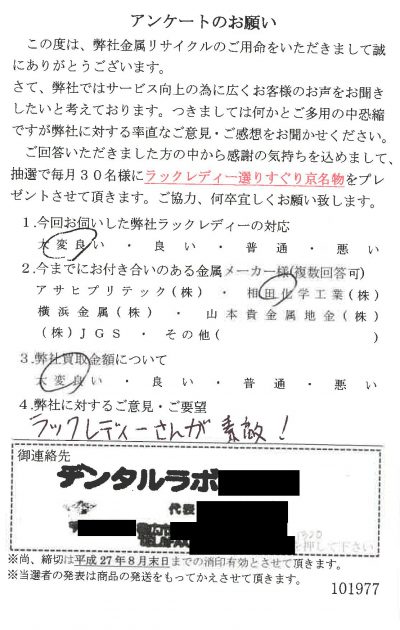 アンケートのお願い
この度は、弊社金属リサイクルのご用命をいただきまして誠
にありがとうございます。
さて、弊社ではサービス向上の為に広くお客様のお声をお聞き
したいと考えております。つきましては何かとご多用の中恐縮
ですが弊社に対する率直なご意見・ご感想をお聞かせください。
ご回答いただきました方の中から感謝の気持ちを込めまして、
抽選で毎月30名様にラックレディー選りすぐり京名物をプレ
ゼントさせて頂きます。ご協力、何卒宜しくお願い致します。
1.今回お伺いした弊社ラックレディーの対応
大変良い・良い・普通・悪い
2.今までにお付き合いのある金属メーカー様(複数回答可)
アサヒプリテック(株)・相田化学工業(株)
横浜金属(株)・山本貴金属地金(株)
(株)JGS・その他( )
3.弊社買取金額について
大変良い・良い・普通・悪い
4.弊社に対するご意見・ご要望
ラックレディーさんが素敵!
御連絡先
デンタルラボ
代表
を押して下さい
※尚、締切は平成27年8月末日までの消印有効とさせて頂きます。
※当選者の発表は商品の発送をもってかえさせて頂きます。
101977